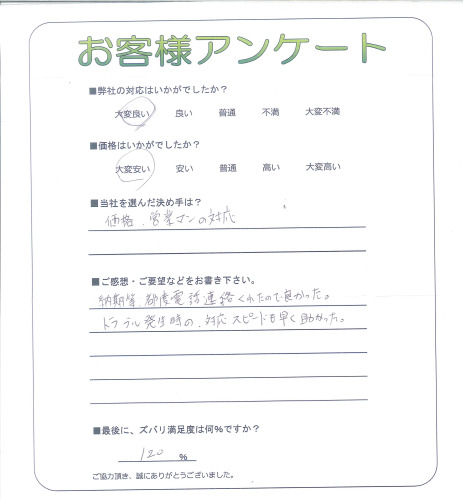 お客様アンケート
■弊社の対応はいかがでしたか？
大変良い　良い　普通　不満　大変不満
■価格はいかがでしたか？
大変安い　安い　普通　高い　大変高い
■当社を選んだ決め手は？
価格、営業マンの対応
■ご感想・ご要望などをお書き下さい。
納期等、都度電話連絡くれたので良かった。
トラブル発生時の、対応スピードも早く助かった。
■最後に、ズバリ満足度は何％ですか？
120 ％
ご協力頂き、誠にありがとうございました。